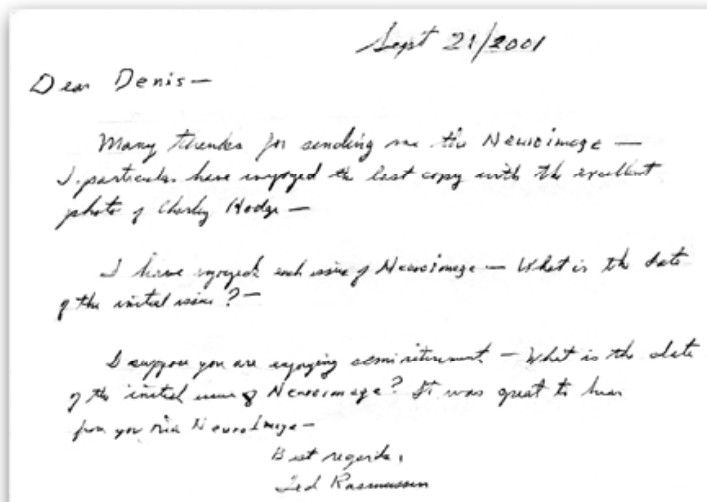 Sept 21/2001
Dear Denis —
Many thanks for sending me the Neuroimage —
I particular have enjoyed the last copy with the excellent
photo of Charley Hodge —
I have enjoyed each issue of Neuroimage — What is the date
of the initial issue ? —
I suppose you are enjoying semiretirement — What is the date
of the initial issue of Neuroimage? It was great to hear
from you via NeuroImage —
Best regards,
Ted Rasmussen